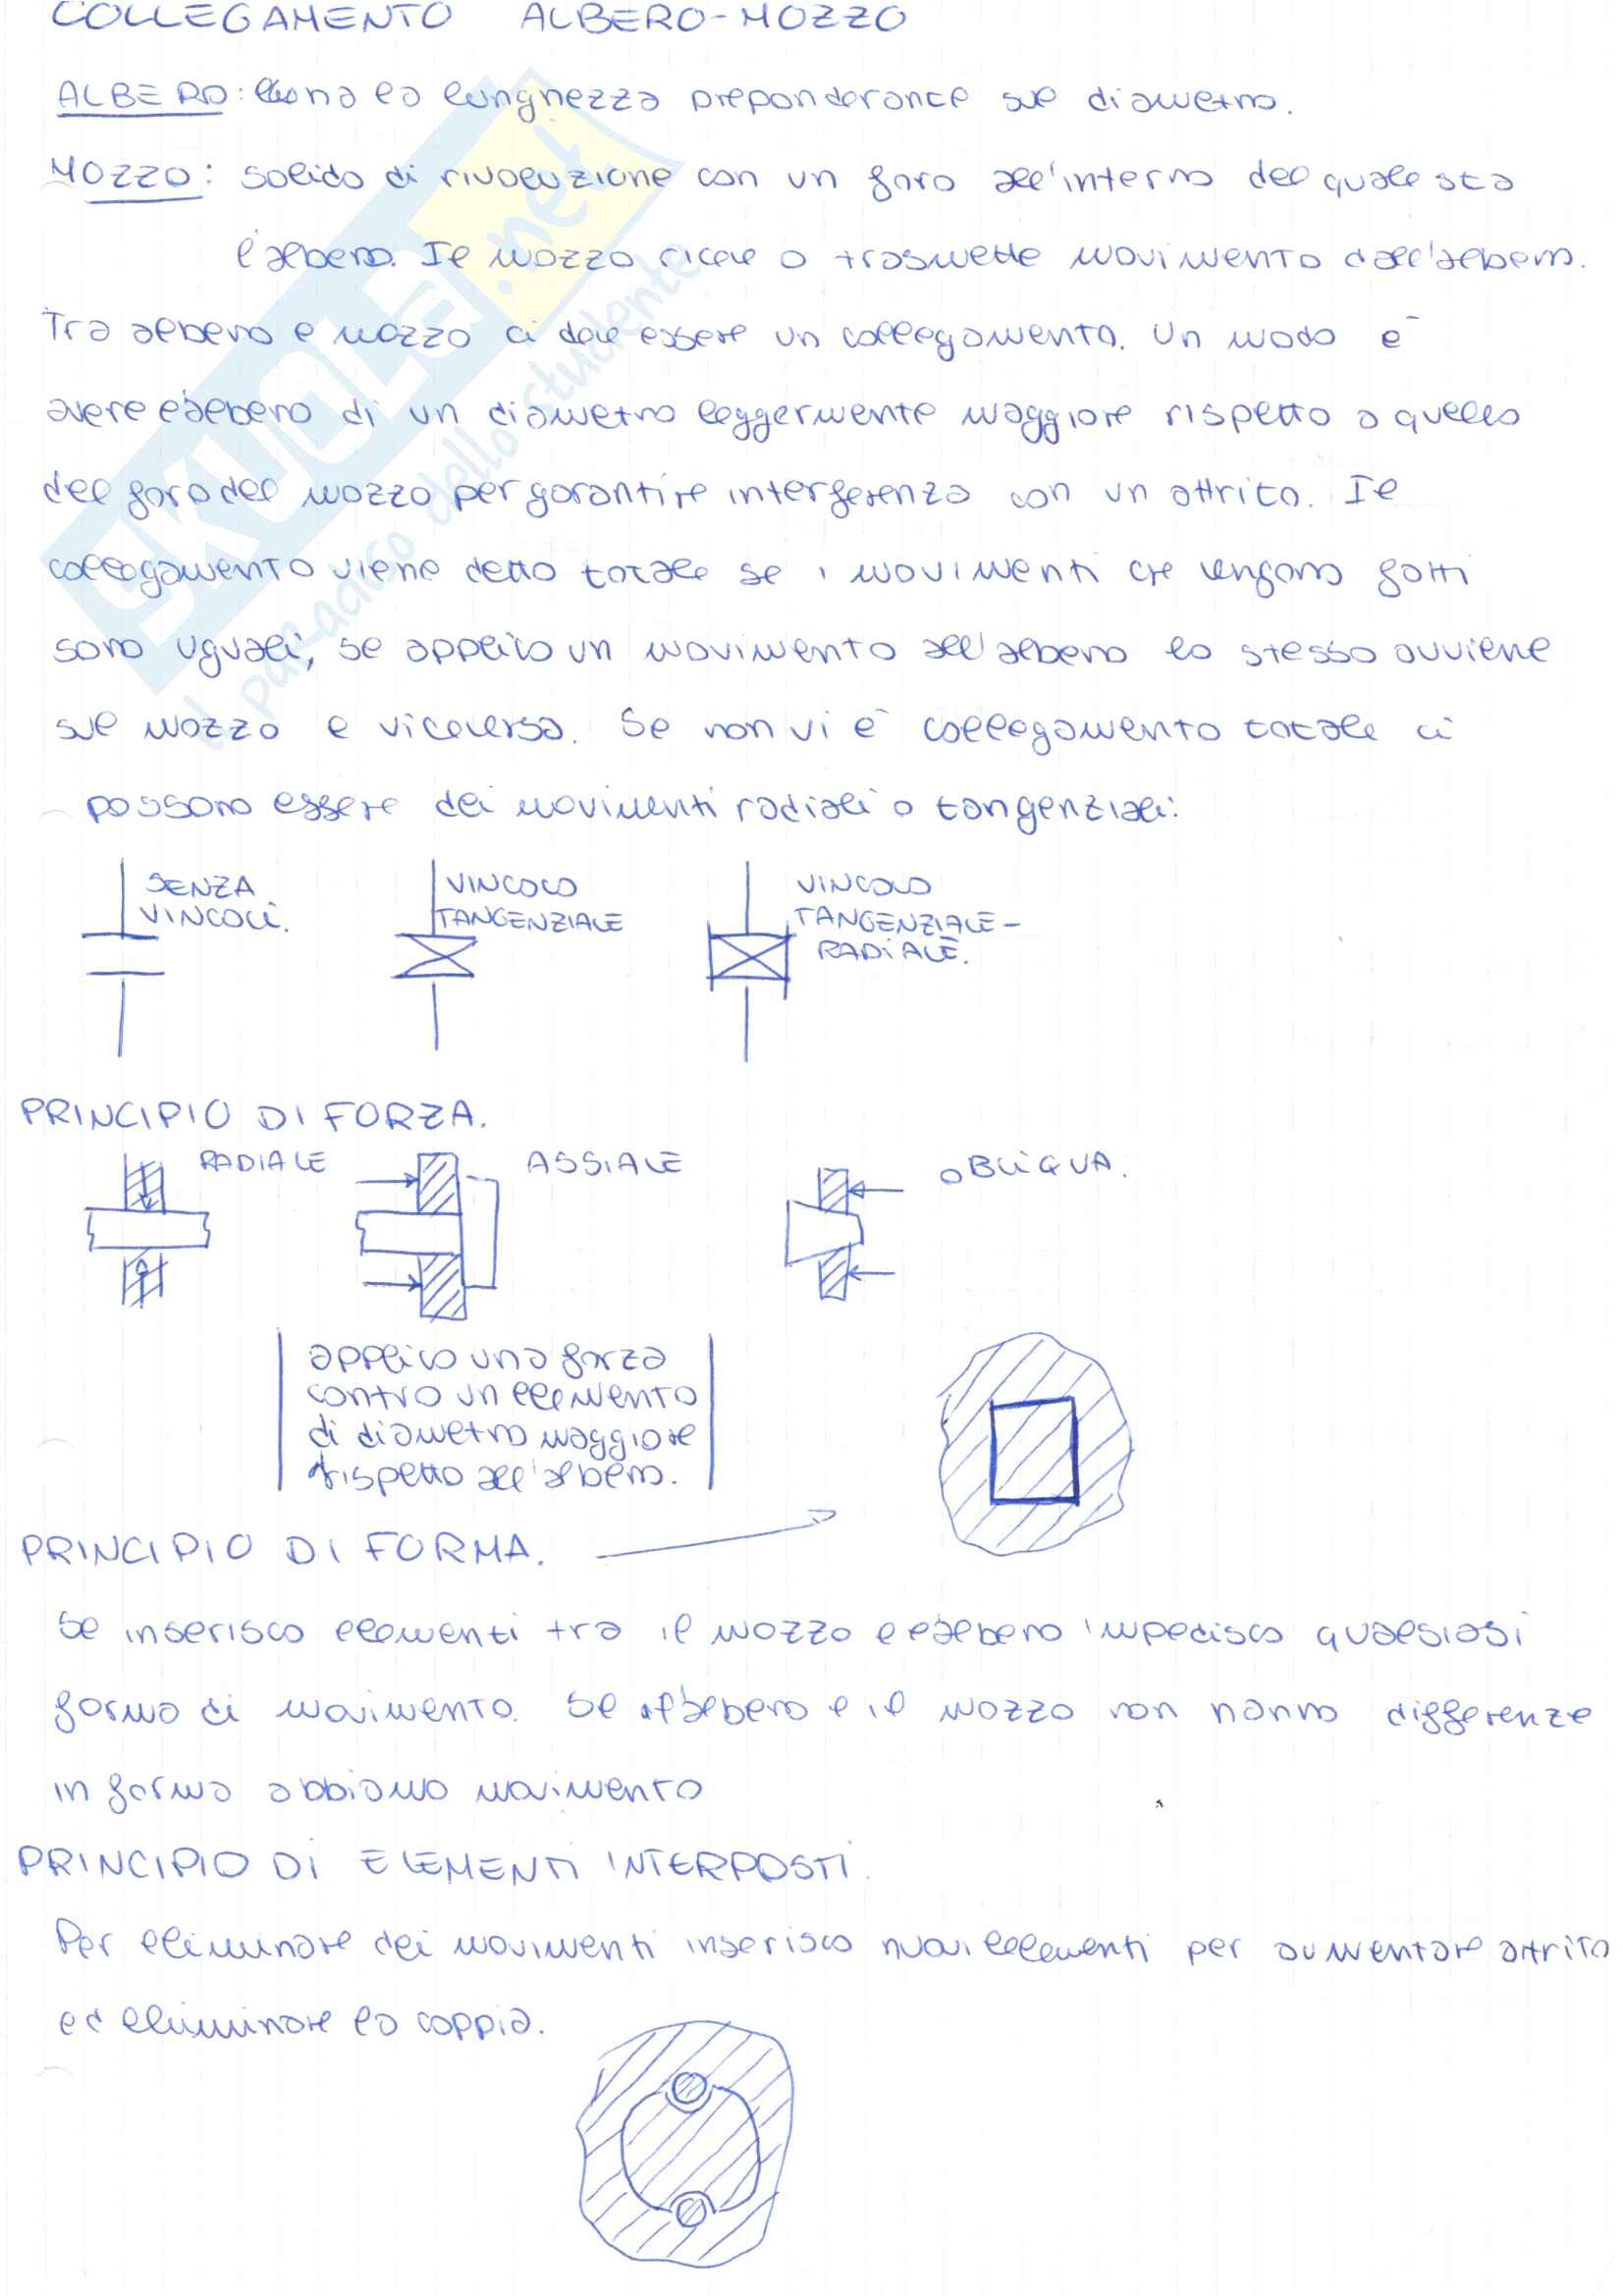 COLLEGAMENTO ALBERO-MOZZO
ALBERO: ha la lunghezza preponderance sul diametro.
MOZZO: solido di rivoluzione con un foro all'interno del quale sta
l'albero. Il mozzo riceve o trasmette movimento dall'albero.
Tra albero e mozzo ci deve essere un collegamento. Un modo è
avere l'albero di un diametro leggermente maggiore rispetto a quello
del foro del mozzo per garantire interferenza con un attrito. Il
collegamento viene detto totale se i movimenti che vengono fatti
sono uguali, se applico un movimento all'albero lo stesso avviene
sul mozzo e viceversa. Se non vi è collegamento totale ci
possono essere dei movimenti radiali o tangenziali:
SENZA VINCOLI.
VINCOLO TANGENZIALE
VINCOLO TANGENZIALE-RADIALE.
PRINCIPIO DI FORZA.
RADIALE
ASSIALE
OBLIQUA.
applico una forza
contro un elemento
di diametro maggiore
rispetto all'albero.
PRINCIPIO DI FORMA.
Se inserisco elementi tra il mozzo e l'albero impedisco qualsiasi
forma di movimento. Se l'albero e il mozzo non hanno differenze
in forma abbiamo movimento
PRINCIPIO DI ELEMENTI INTERPOSTI.
Per eliminare dei movimenti inserisco nuovi elementi per aumentare attrito
ed eliminare la coppia.
SKUOLA.net
il paradiso dello studente